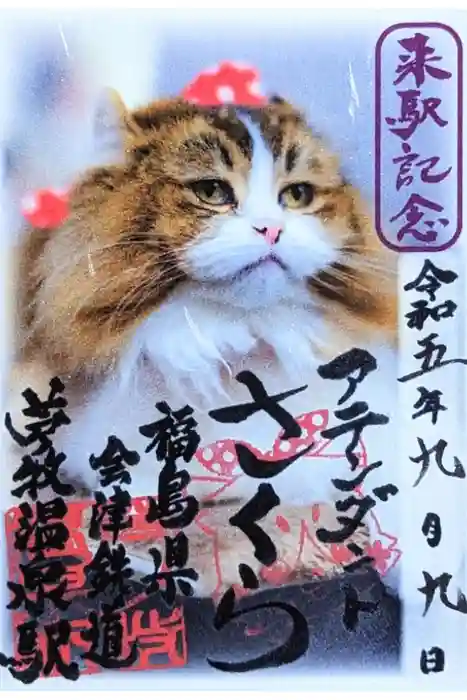 来駅記念
令和五年九月九日
アテンダント
さくら
福島県
会津鉄道
芦牧温泉駅